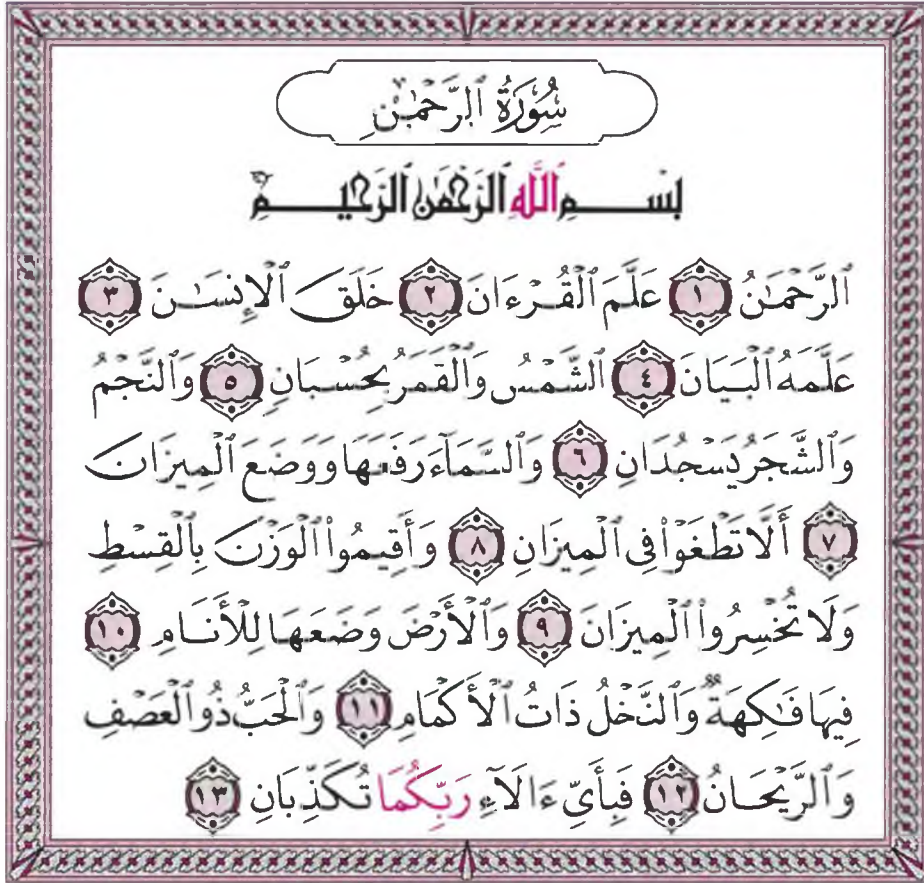 سُورَةُ ٱلرَّحْمَٰنِ
بِسْمِ ٱللَّهِ ٱلرَّحْمَٰنِ ٱلرَّحِيمِ
ٱلرَّحْمَٰنُ ١ عَلَّمَ ٱلْقُرْءَانَ ٢ خَلَقَ ٱلْإِنسَٰنَ ٣
عَلَّمَهُ ٱلْبَيَانَ ٤ ٱلشَّمْسُ وَٱلْقَمَرُ بِحُسْبَانٍ ٥ وَٱلنَّجْمُ
وَٱلشَّجَرُ يَسْجُدَانِ ٦ وَٱلسَّمَآءَ رَفَعَهَا وَوَضَعَ ٱلْمِيزَانَ
٧ أَلَّا تَطْغَوْا۟ فِى ٱلْمِيزَانِ ٨ وَأَقِيمُوا۟ ٱلْوَزْنَ بِٱلْقِسْطِ
وَلَا تُخْسِرُوا۟ ٱلْمِيزَانَ ٩ وَٱلْأَرْضَ وَضَعَهَا لِلْأَنَامِ ١٠
فِيهَا فَٰكِهَةٌ وَٱلنَّخْلُ ذَاتُ ٱلْأَكْمَامِ ١١ وَٱلْحَبُّ ذُو ٱلْعَصْفِ
وَٱلرَّيْحَانُ ١٢ فَبِأَىِّ ءَالَآءِ رَبِّكُمَا تُكَذِّبَانِ ١٣